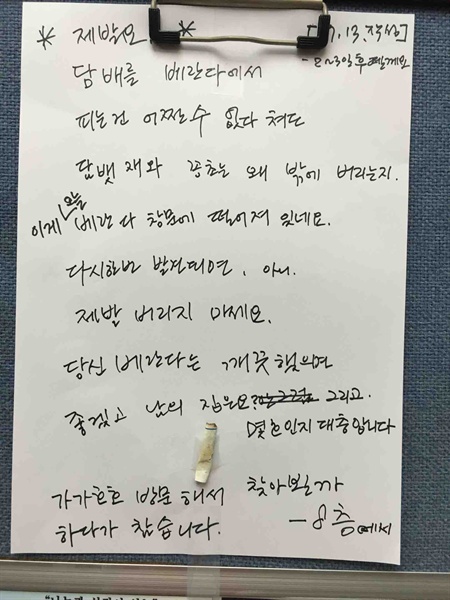 * 제발요 * 7.13.작성]
-2~3일후 뗄게요
담배를 베란다에서
피는건 어쩔수 없다 쳐도
담뱃재와 꽁초는 왜 밖에 버리는지.
이게 오늘 베란다 창문에 떨어져 있네요.
다시한번 발견되면, 아니.
제발 버리지 마세요.
당신 베란다는 깨끗했으면
좋겠고 남의 집은요? 그리고.
몇호인지 대충압니다
가가호호 방문해서 찾아볼까
하다가 참습니다. -8층에서